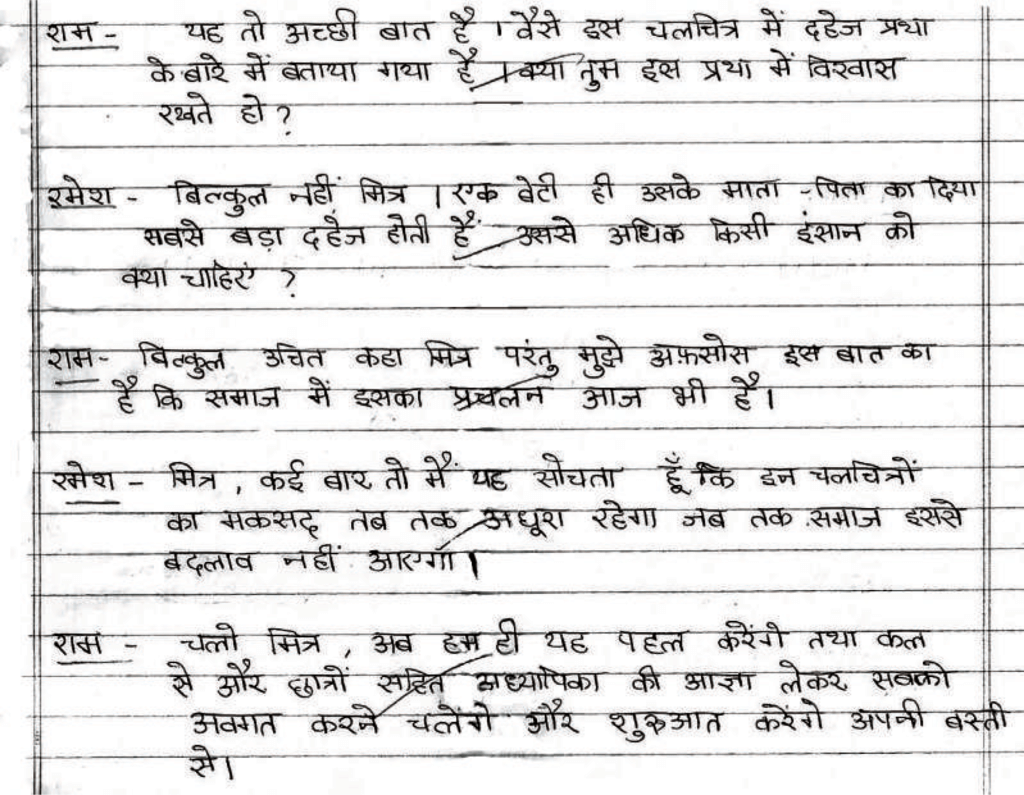 राम - यह तो अच्छी बात है । वैसे इस चलचित्र में दहेज प्रथा
के बारे में बताया गया है । क्या तुम इस प्रथा में विश्वास
रखते हो ?
रमेश - बिल्कुल नहीं मित्र । एक बेटी ही उसके माता - पिता का दिया
सबसे बड़ा दहेज होती है उससे अधिक किसी इंसान को
क्या चाहिए ?
राम - बिल्कुल उचित कहा मित्र परंतु मुझे अफ़सोस इस बात का
है कि समाज में इसका प्रचलन आज भी है ।
रमेश - मित्र , कई बार तो मैं यह सोचता हूँ कि इन चलचित्रों
का मकसद तब तक अधूरा रहेगा जब तक समाज इससे
बदलाव नहीं आएगा ।
राम - चलो मित्र , अब हम ही यह पहल करेंगे तथा कल
से और छात्रों सहित अध्यापिका की आज्ञा लेकर सबको
अवगत करने चलेंगे और शुरुआत करेंगे अपनी बस्ती
से ।